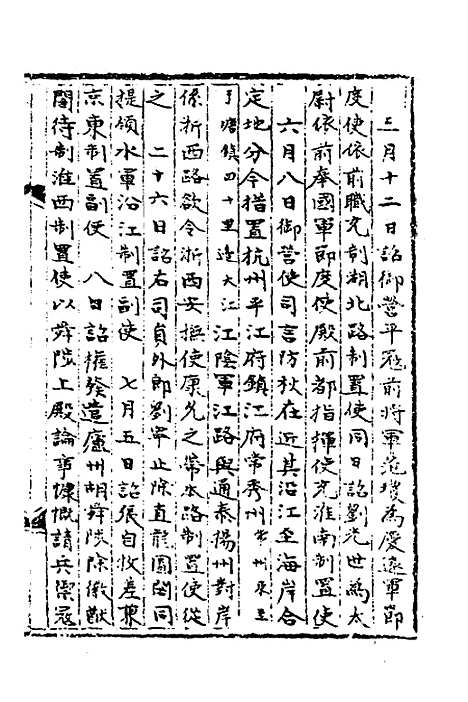 三月十二日詔御營平寇前將軍范瓊為慶遠軍節
度使依前職充荆湖北路制置使同日詔劉光世為太
尉依前奉國軍節度使殿前都指揮使充淮南制置使
六月八日御營使司言防秋在近其沿江至海岸合
定地分今措置杭州平江府鎮江府常秀州常州界至
鎮四十里近大江江陰軍江路與通泰揚州對岸
係浙西路欲令浙西安撫使康允之帶本路制置使從
之 二十六日詔右司員外郎劉寧止除直龍圖閣同
提領水軍沿江制置副使 七月五日詔張自牧差兼
京東制置副使 八日詔權發遣廬州胡舜陟除徽猷
閣待制淮西制置使以舜陟上殿論事慷慨請兵禦寇